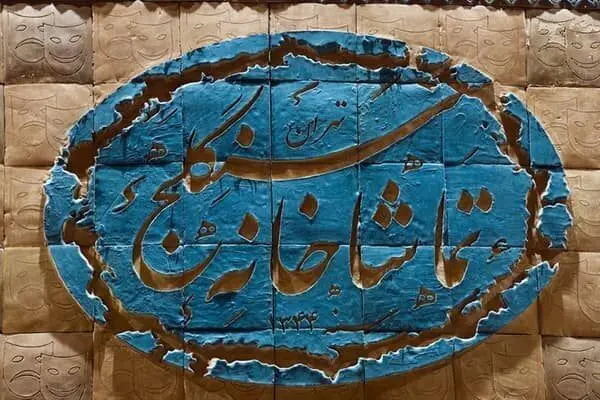 تهران
تماشاخانه سنگلج
۱۳۴۴